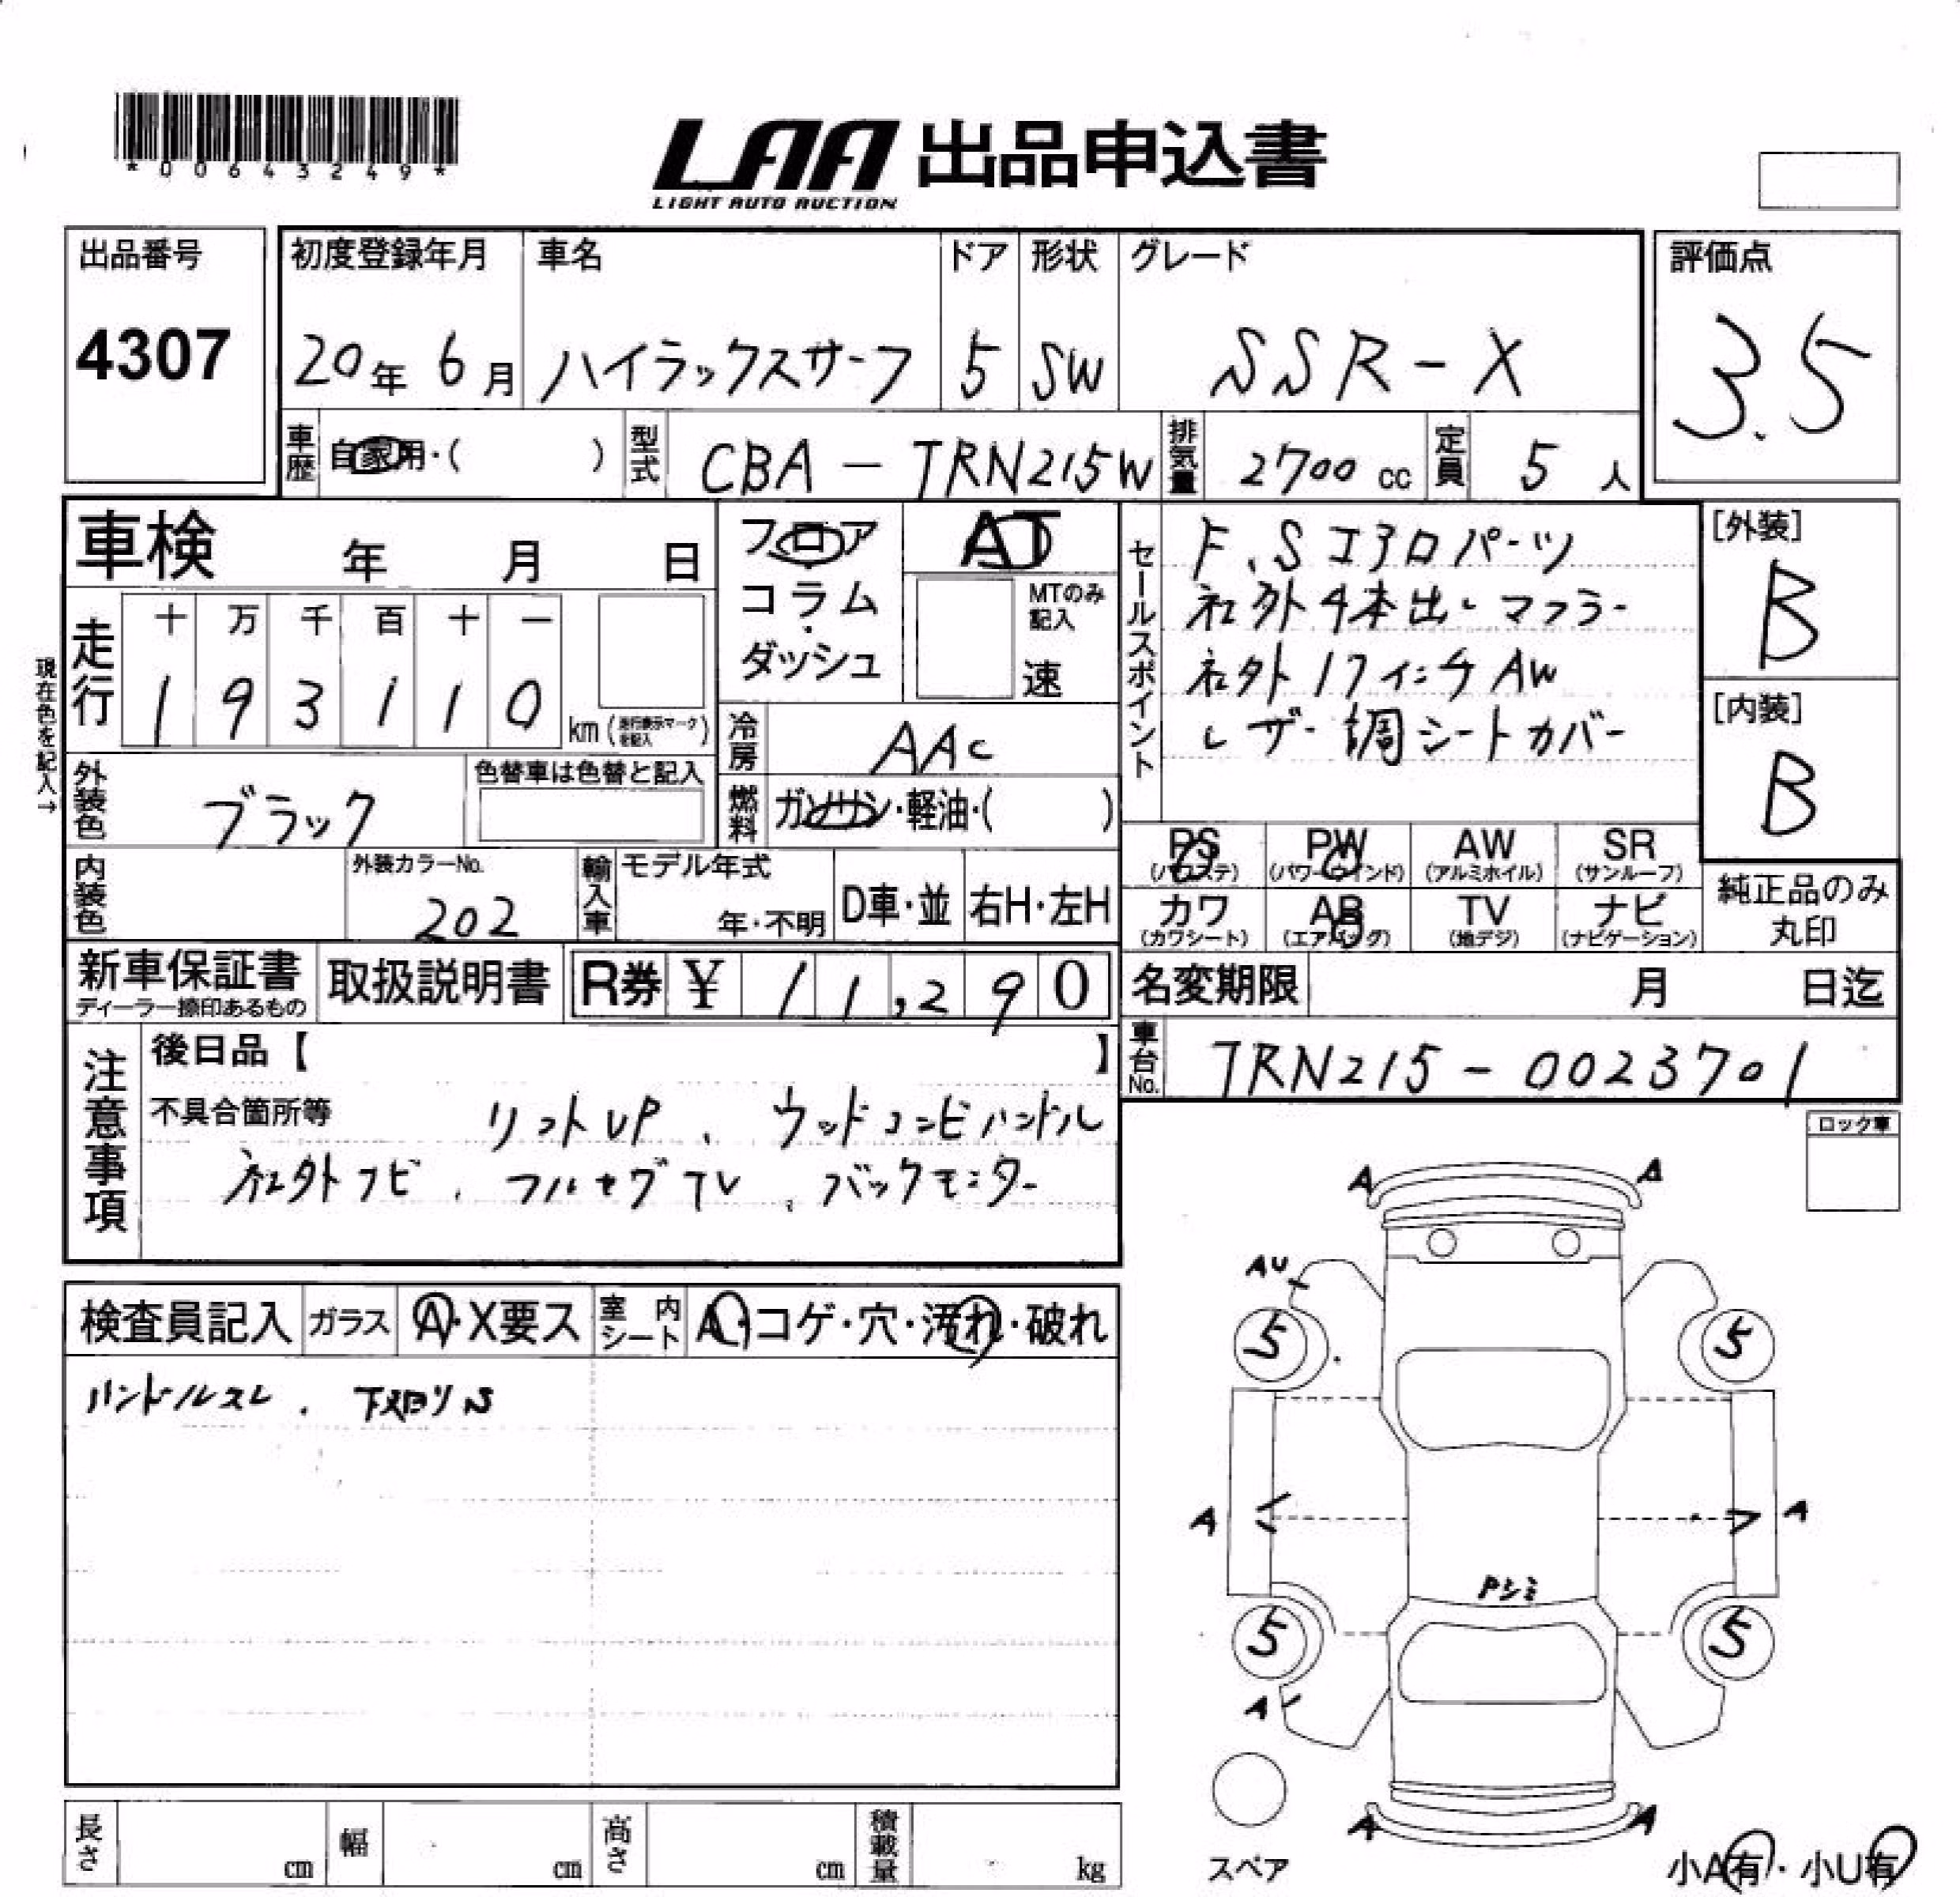 *00643249*
LAA 出品申込書
LIGHT AUTO AUCTION
出品番号
4307
初度登録年月 車名 ドア 形状 グレード
20年 6月 ハイラックスサーフ 5 SW SSR-X
評価点
3.5
車歴 自家用・( ) 型式 CBA-TRN215W 排気量 2700cc 定員 5人
車検 年 月 日
フロア
コラム
・
ダッシュ
AT
MTのみ記入
速
現在色を記入→
走行 十 万 千 百 十 一
1 9 3 1 1 0 km (走行表示マークを記入)
冷房 AAC
燃料 ガソリン・軽油・( )
外装色 ブラック 色替車は色替と記入
内装色 外装カラーNo. 202
輸入車 モデル年式 年・不明 D車・並 右H・左H
セールスポイント
F、Sエアロパーツ
社外4本出しマフラー
社外17インチAW
レザー調シートカバー
[外装]
B
[内装]
B
PS(パワステ) PW(パワーウインド) AW(アルミホイル) SR(サンルーフ)
カワ(カワシート) AB(エアバッグ) TV(地デジ) ナビ(ナビゲーション)
純正品のみ丸印
新車保証書 ディーラー捺印あるもの 取扱説明書 R券 ¥ 11,290
名変期限 月 日迄
車台No. TRN215-0023701
注意事項
後日品【 】
不具合箇所等 リフトUP、ウッドコンビハンドル
社外ナビ、フルセグTV、バックモニター
ロック車
検査員記入 ガラス A・X要ス 室内シート A・コゲ・穴・汚れ・破れ
ハンドルスレ、下廻りS
A A
AU
5 5
A A
Pシミ
5 5
A
A A
スペア
小A有・小U有
長さ cm 幅 cm 高さ cm 積載量 kg